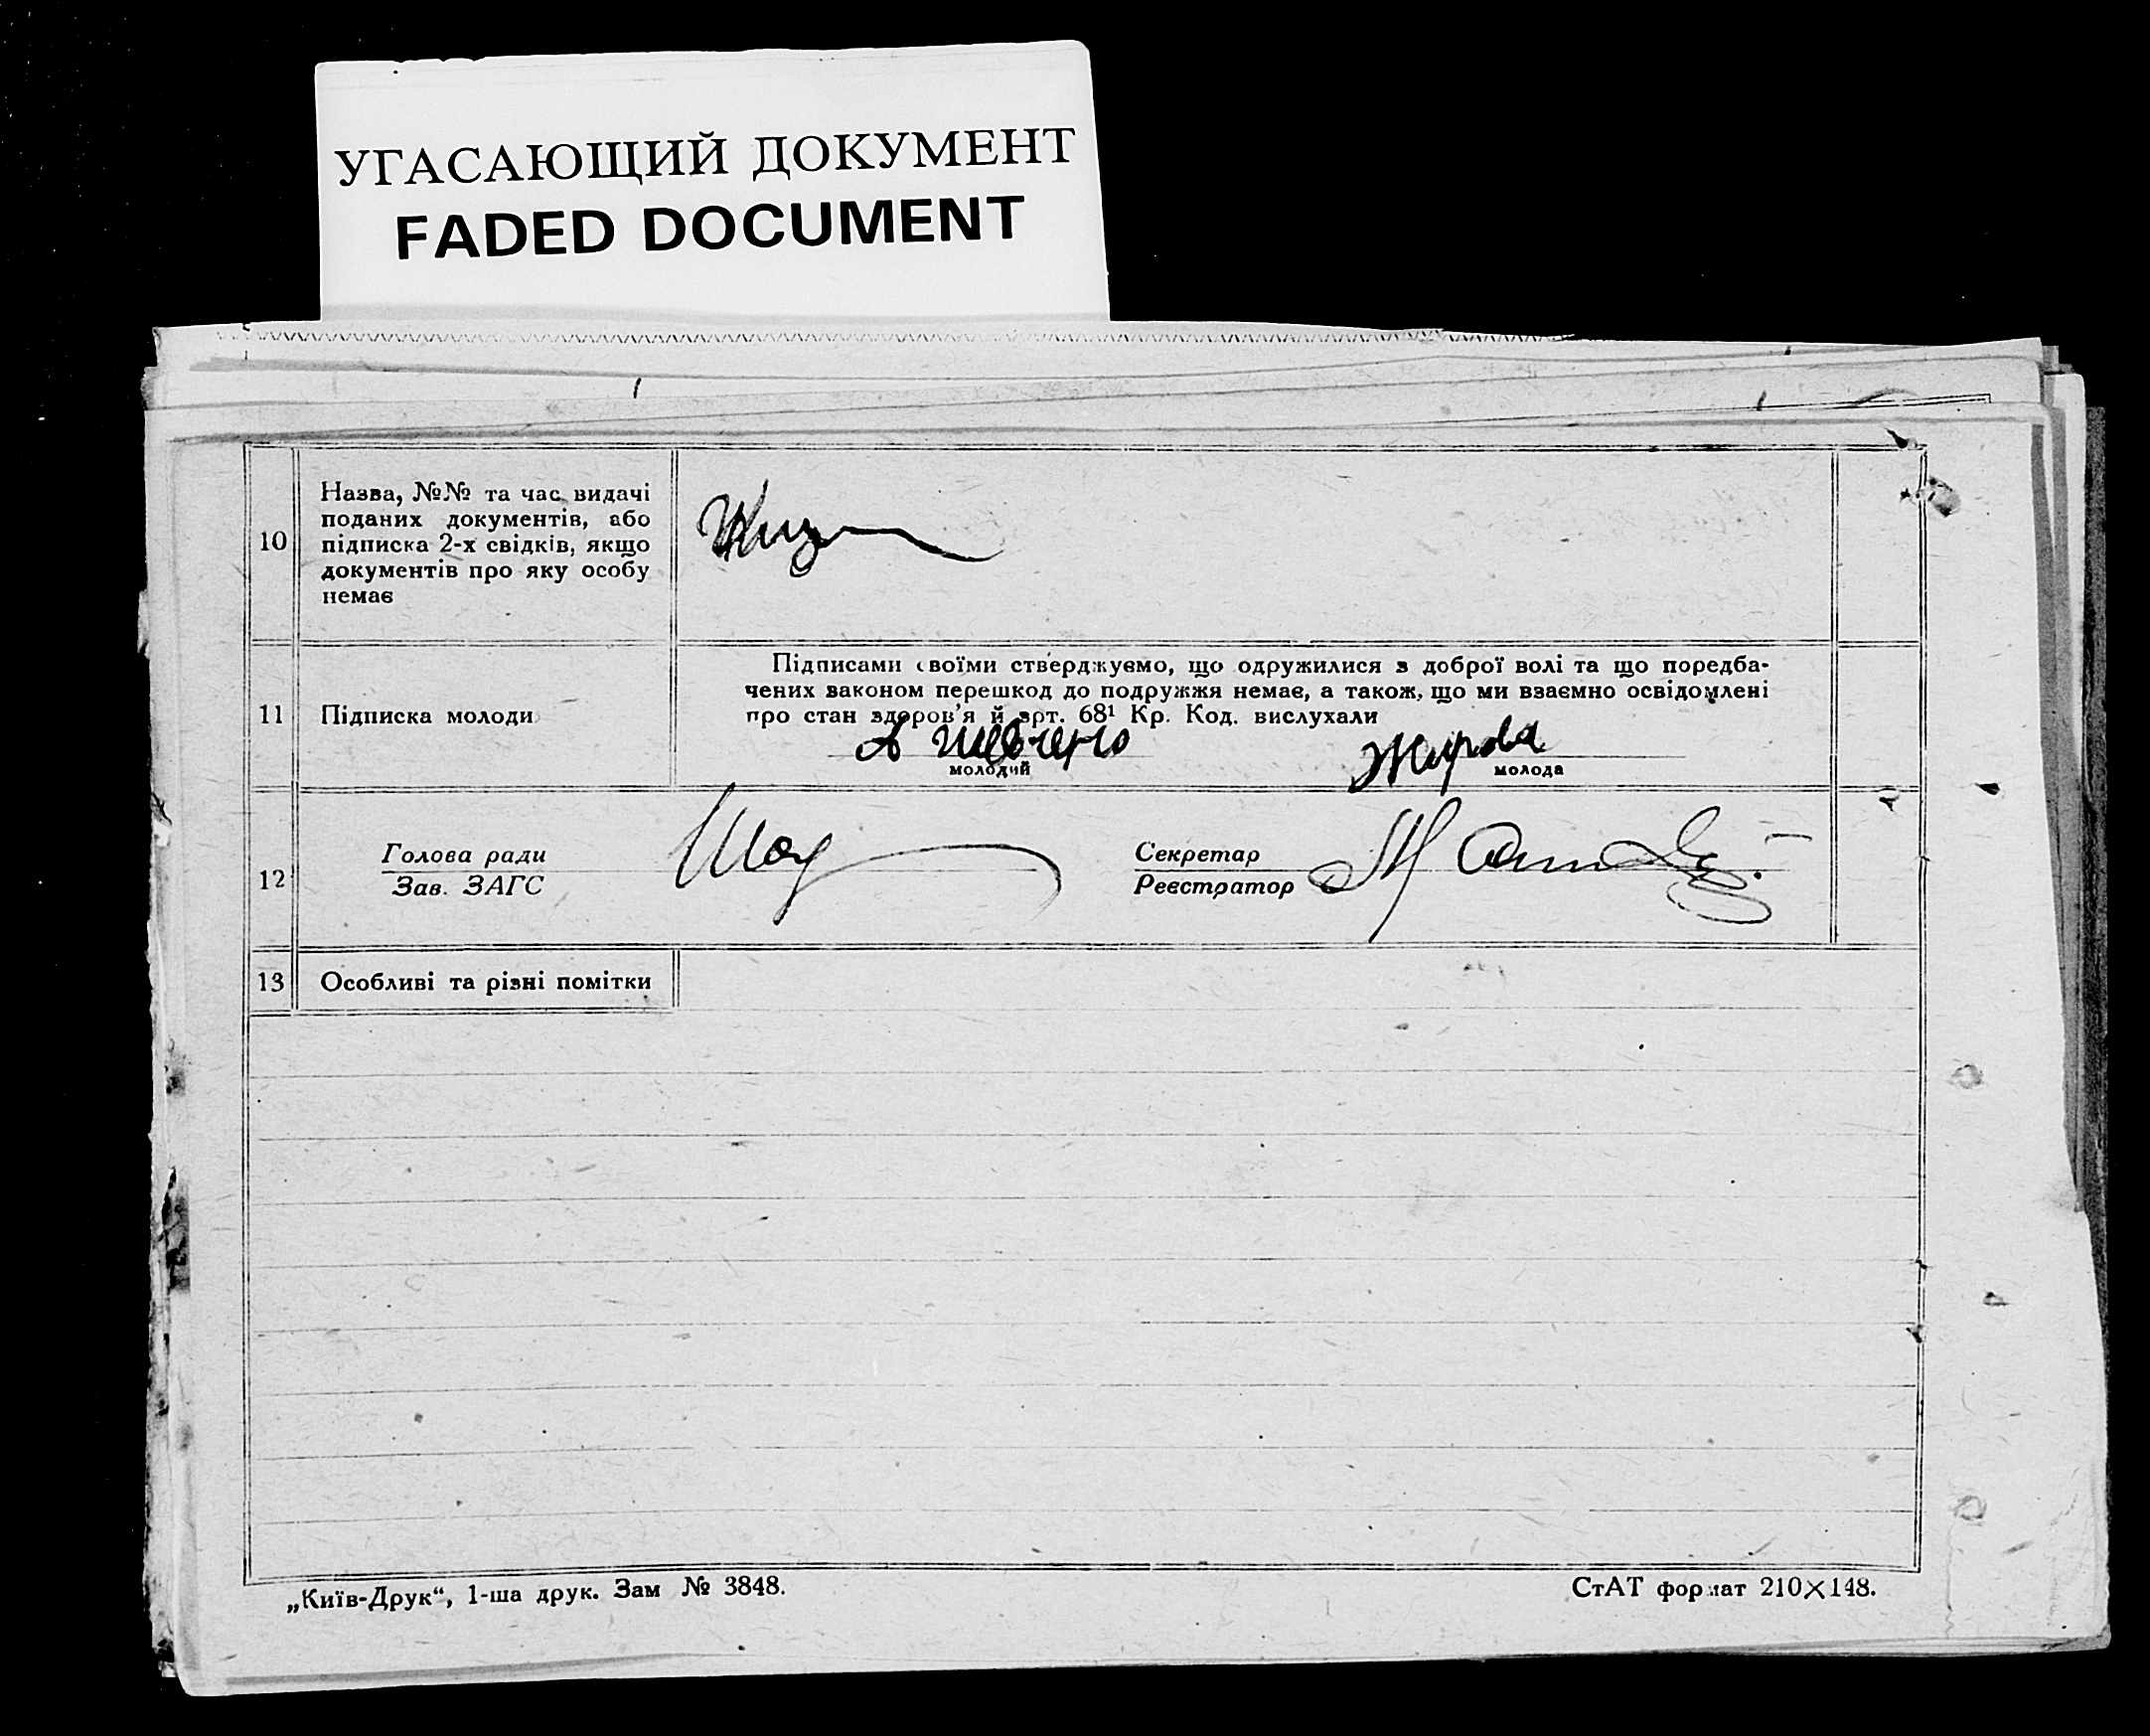 УГАСАЮЩИЙ ДОКУМЕНТ
FADED DOCUMENT
10
Назва, №№ та час видачі
поданих документів, або
підписка 2-х свідків, якщо
документів про яку особу
немає
11
Підписка молоди
Підписами своїми стверджуємо, що одружилися з доброї волі та що поредба-
чених законом перешкод до подружжя немає, а також, що ми взаємно освідомлені
про стан здоров'я й арт. 68¹ Кр. Код. вислухали
А
молодий
молода
12
Голова ради
Зав. ЗАГС
Секретар
Реєстратор
13
Особливі та різні помітки
„Київ-Друк“, 1-ша друк. Зам № 3848.
СтАТ формат 210×148.